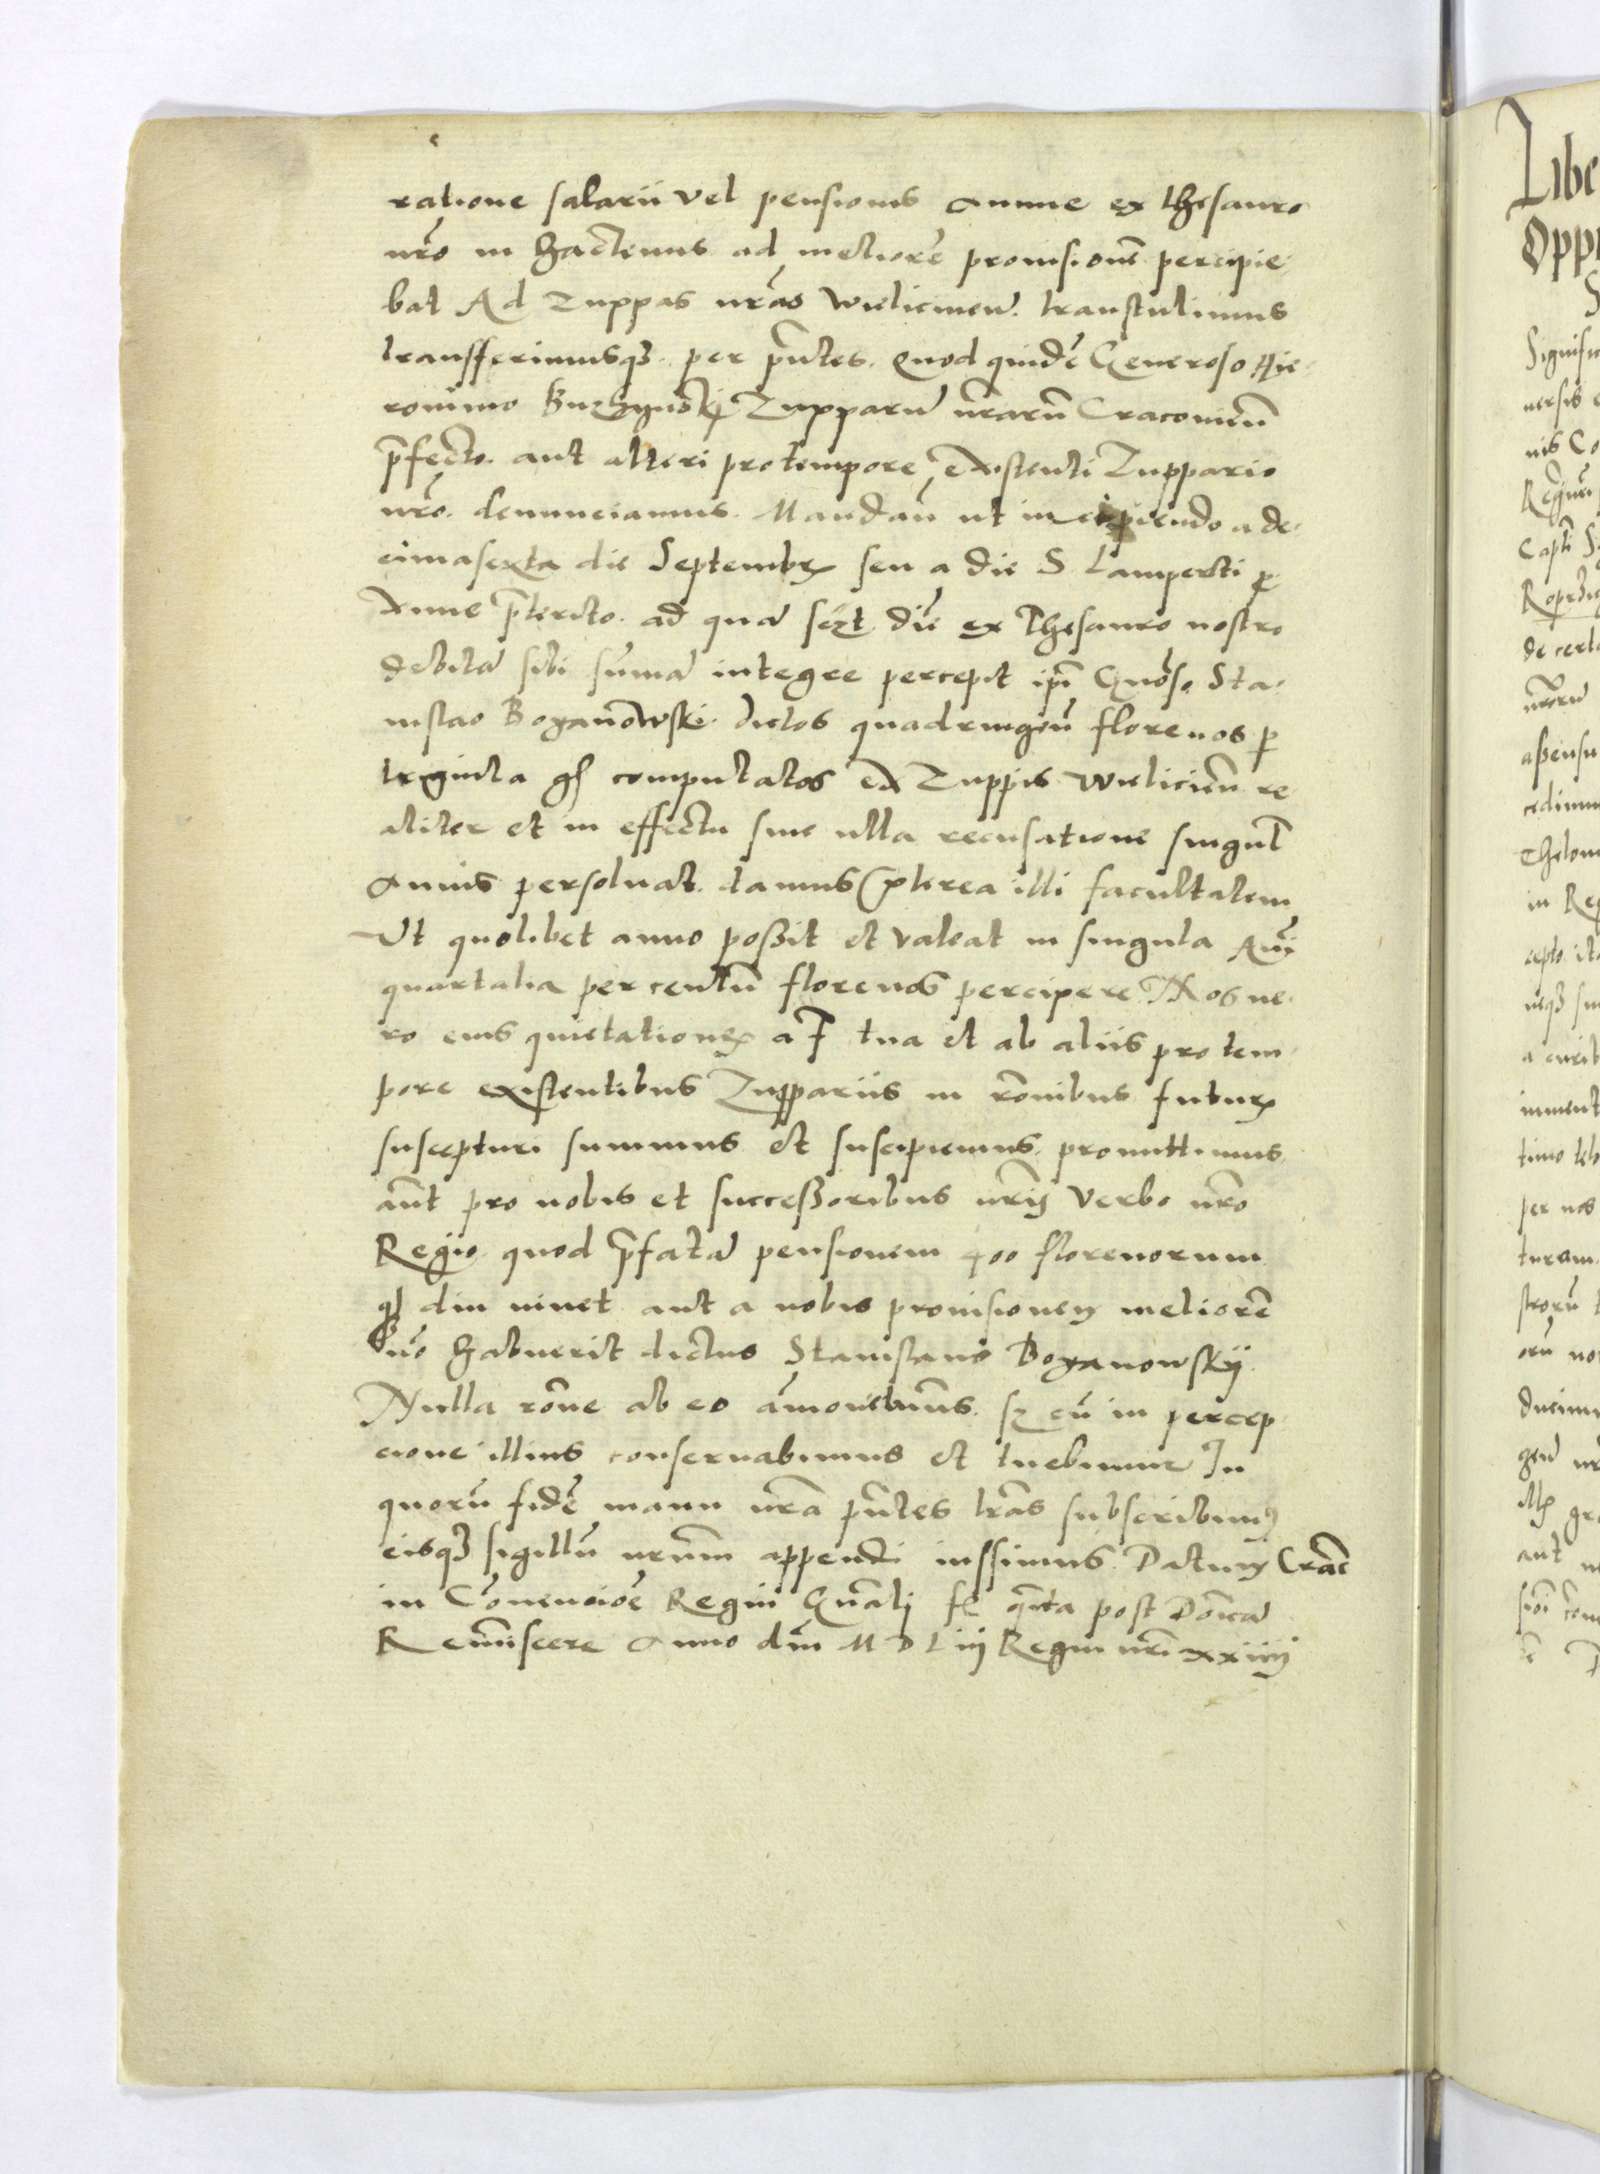 ratione salarii vel pensionis annue ex thesauro
nr̃o in hactenus ad meliorẽ provisionẽ percipie
bat Ad Zuppas nr̃as Wielicien̄ transtulimus
transfferimusqȝ per p̃ntes. Quod quidẽ Generoso Hie
ronimo Buzhynski Zupparũ nr̃arũ Cracovien̄
p̃fecto aut alteri pro tempore existenti Zuppario
nr̃o denunciamus Mandan̄ ut incipiendo a de
cimasexta die Septembr̃ seu a die S Lamperti p
xime p̃terito ad quã diẽ ex Thesauro nostro
debitã sibi sum̃ã integre percepit ip̃i Gn̄oso Sta
nislao Boxanowski dictos quadringen̄ florenos p
triginta gr̃ computatos ex Zuppis Wielicien̄ re
aliter et in effectu sine ulla recusatione singul̃
annis persolvat. damus p̃terea illi facultatem
Ut quolibet anno possit et valeat in singula An̄i
quartalia per centũ florenos percipere Nos ve
ro eius quietationes a F tua et ab aliis pro tem
pore existentibus Zuppariis in rõnibus futur̃
suscepturi summus et suscipiemus promittimus
aũt pro nobis et successoribus nr̃is Verbo nr̃o
Regio quod p̃fatã pensionem 400 florenorum
diu vivet aut a nobis provisionem meliorẽ
nõ habuerit dictus Stanislaus Boxanowskij
Nulla rõne ab eo amovebimus. sz eũ in percep
cione illius conservabimus et tuebimur In
quorũ fidẽ manu nr̃a p̃ntes lr̃as subscribimus
eisqȝ sigillũ nr̃um appendi iussimus. Datum Crac̃
in Convencione Regni Gñali f̃ quinta post Dominicã
Reminiscere Anno dñi M D L iij Regni nr̃i xxiiij
Libe
Opp